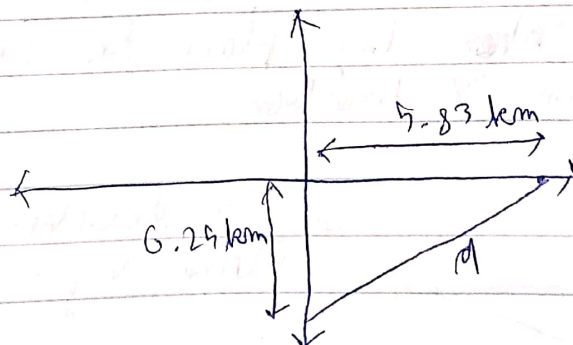 5.83 km
6.25 km
d